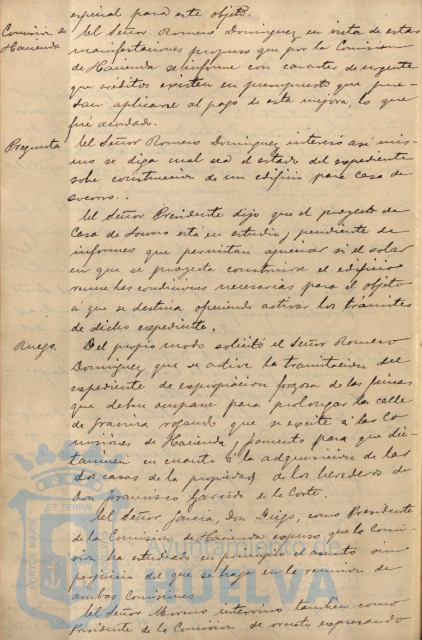 especial para este objeto.
Comisión de Hacienda
El Señor Romero Dominguez en vista de estas
manifestaciones propuso que por la Comision
de Hacienda se informe con caracter de urgente
que créditos existen en presupuesto que pue-
dan aplicarse al pago de esta mejora, lo que
fué acordado.
Pregunta
El Señor Romero Dominguez interesó así mis-
mo se diga cual sea el estado del expediente
sobre construccion de un edificio para casa de
socorro.
El Señor Presidente dijo que el proyecto de
Casa de Socorro está en estudio, y pendiente de
informes que permitan apreciar si el solar
en que se proyecta construirse el edificio
reune las condiciones necesarias para el objeto
á que se destina, ofreciendo activar los trámites
de dicho expediente.
Ruego.
Del propio modo solicitó el Señor Romero
Dominguez que se active la tramitacion del
expediente de expropiacion forzosa de las fincas
que deben ocuparse para prolongar la calle
de Gravina rogando que se excite á las Co-
misiones de Hacienda y Fomento para que dic-
taminen en cuanto á la adquisicion de las
dos casas de la propiedad de los herederos de
Don Francisco Garrido de la Corte.
El Señor Garcia, Don Diego, como Presidente
de la Comision de Hacienda expuso que la Comi-
sion ha estudiado en principio el asunto sin
perjuicio del que se haga en la reunion de
ambas Comisiones.
El Señor Moreno intervino tambien como
Presidente de la Comision de ornato esperando
PORTUS MARIS ET TERRAE
Ayuntamiento de
HUELVA